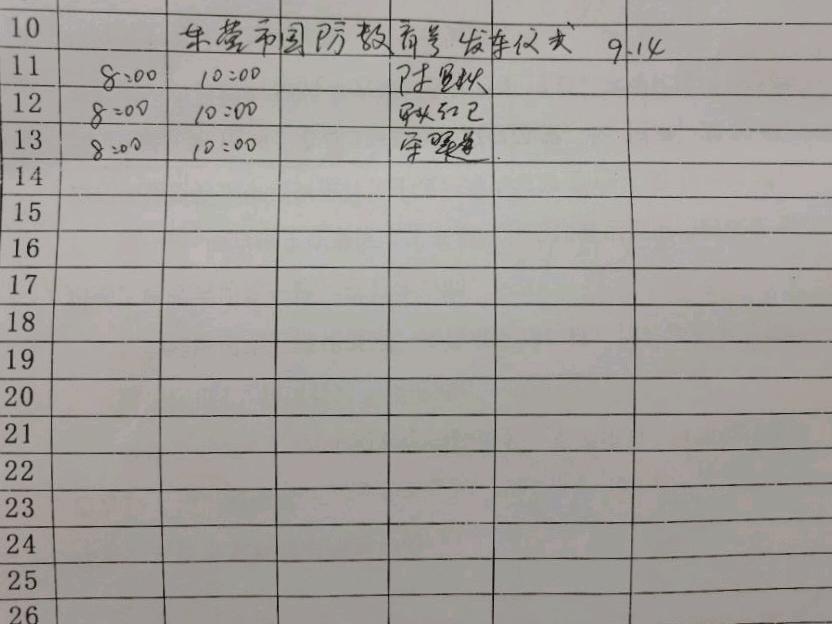 10 东营市国防教育号发车仪式 9.14
11 8:00 10:00
12 8:00 10:00
13 8:00 10:00
14
15
16
17
18
19
20
21
22
23
24
25
26